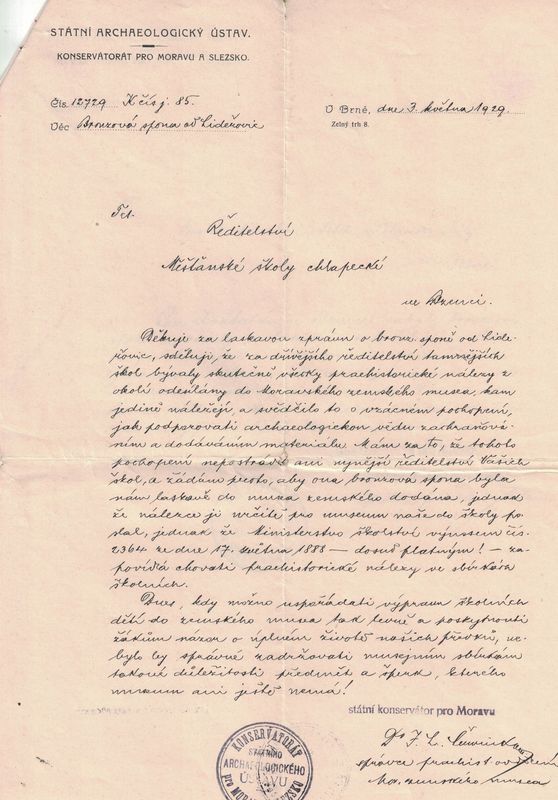 STÁTNÍ ARCHAEOLOGICKÝ ÚSTAV.
KONSERVÁTORÁT PRO MORAVU A SLEZSKO.
Čís. 12729 K čís j. 85.
Věc Bronzová spona od Lideřovic
V Brně, dne 3. května 1929.
Zelný trh 8.
Tct.
Ředitelství
Měšťanské školy chlapecké
ve
Děkuje za laskavou zprávu o bronz. sponě od Lide-
řovic, sděluji, že za dřívějšího ředitelství tamnějších
škol bývaly skutečně všecky praehistorické nálezy z
okolí odesílány do Moravského zemského musea, kam
jedině náležejí, a svědčilo to o vzácném pochopení,
jak podporovati archaeologickou vědu zachraňová-
ním a dodáváním materiálu. Mám za to, že tohoto
pochopení nepostrádá ani nynější ředitelství Vašich
škol, a žádám proto, aby ona bronzová spona byla
nám laskavě do musea zemského dodána, jednak
že nálezce ji určitě pro museum naše do školy po-
slal, jednak že Ministerstvo školství výnosem čís.
2364 ze dne 17. května 1888 — dosud platným! — za-
povídá chovati praehistorické nálezy ve sbírkách
školních.
Dnes, kdy možno uspořádati výpravu školních
dětí do zemského musea tak levně a poskytnouti
žákům názor o úplném životě našich předků, ne-
bylo by správné zadržovati musejním sbírkám
takové důležitosti předmět a šperk, kterého
museum ani ještě nemá!
státní konservátor pro Moravu
Dr I. L. Červinka
správce praehist oddělení
Mor. zemského musea
KONSERVATORÁT
STÁTNÍHO
ARCHAEOLOGICKÉHO
ÚSTAVU
pro MORAVU SLEZSKO